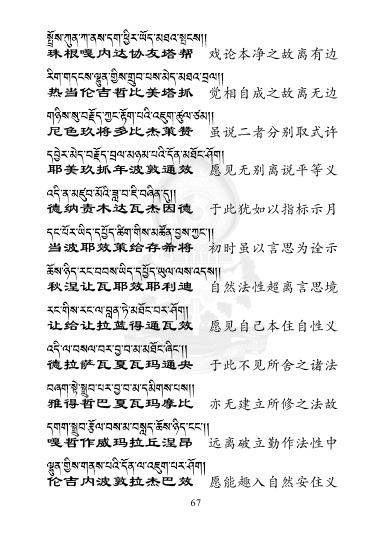 སྤྲོས་ཀུན་ཀ་ནས་དག་ཕྱིར་ཡོད་མཐའ་སྤངས།།
珠根嘎内达协友塔帮 戏论本净之故离有边
རིག་གདངས་ལྷུན་གྱིས་གྲུབ་པས་མེད་མཐའ་བྲལ།།
热当伦吉哲比美塔抓 觉相自成之故离无边
གཉིས་སུ་བརྗོད་ཀྱང་རྟོག་པའི་འཇུག་ཚུལ་ཙམ།།
尼色玖将多比杰策赞 虽说二者分别取式许
དབྱེར་མེད་བརྗོད་བྲལ་མཉམ་པའི་དོན་མཐོང་ཤོག།
耶美玖抓年波敦通效 愿见无别离说平等义
འདི་ན་མཛུབ་མོའི་ཟླ་བ་ཇི་བཞིན་དུ།།
德纳贵木达瓦杰因德 于此犹如以指标示月
དང་པོར་ཡིད་དཔྱོད་ཚིག་གིས་མཚོན་བྱས་ཀྱང་།།
当波耶效策给存希将 初时虽以言思为诠示
ཆོས་ཉིད་རང་བབས་ཡིད་དཔྱོད་ཡུལ་ལས་འདས།།
秋涅让瓦耶效耶利迪 自然法性超离言思境
རང་གིས་རང་ལ་བལྟན་ཏེ་མཐོང་བར་ཤོག།
让给让拉蓝得通瓦效 愿见自己本住自性义
འདི་ལ་བསལ་བར་བྱ་བ་མ་མཐོང་ཞིང་།།
德拉萨瓦夏瓦玛通央 于此不见所舍之诸法
བཞག་སྟེ་སྒྲུབ་པར་བྱ་བ་མ་དམིགས་པས།།
雅得哲巴夏瓦玛摩比 亦无建立所修之法故
དགག་སྒྲུབ་རྩོལ་བས་མ་བསླད་ཆོས་ཉིད་ངང་།།
嘎哲作威玛拉丘涅昂 远离破立勤作法性中
ལྷུན་གྱིས་གནས་པའི་དོན་ལ་འཇུག་པར་ཤོག།
伦吉内波敦拉杰巴效 愿能趣入自然安住义
67